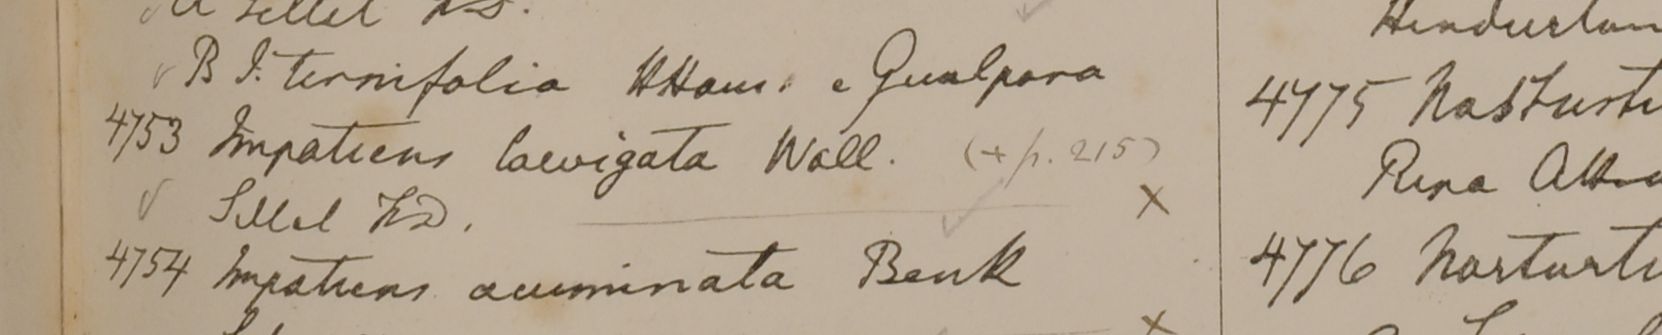 A Sillet FD.
B I. ternifolia HHam. e Gualpara
4753 Impatiens laevigata Wall. (+ p. 215)
Sillet FD. X
4754 Impatiens acuminata Benth
X
Hindustan
4775 Nasturti
Ripa
4776 Nasturti